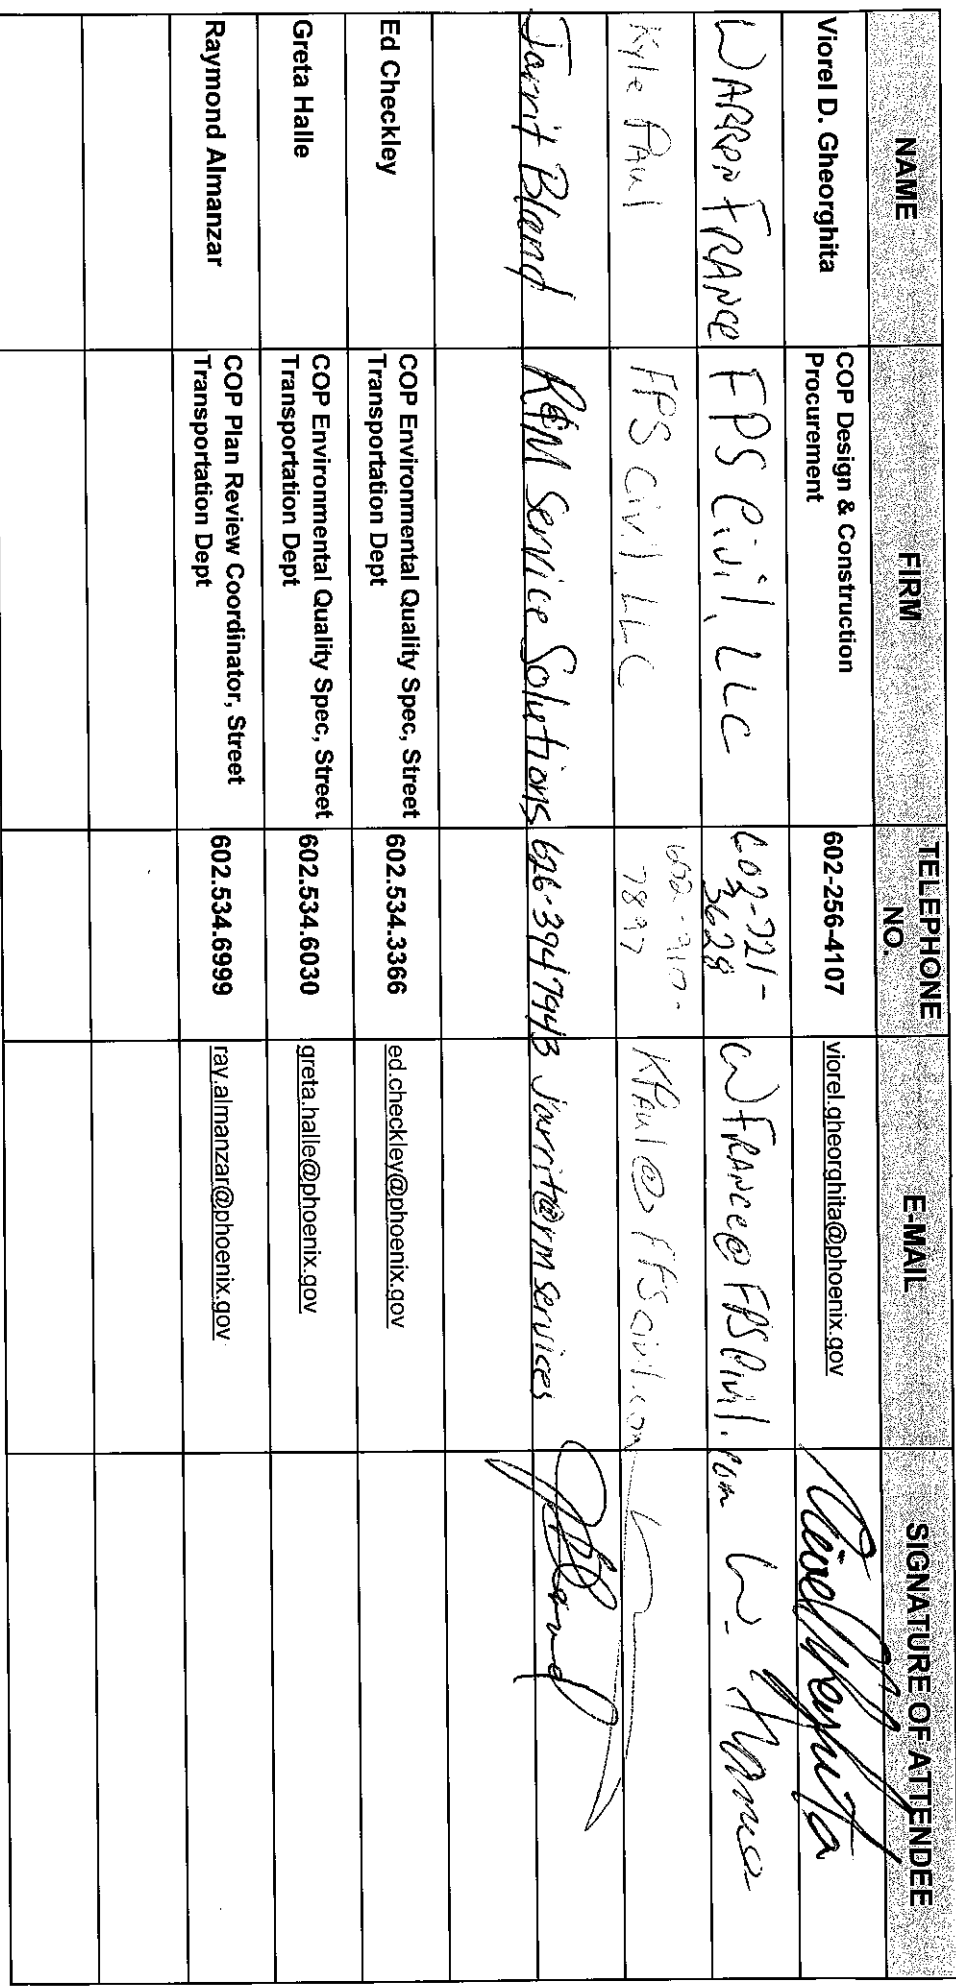 NAME FIRM TELEPHONE NO. E-MAIL SIGNATURE OF ATTENDEE
Viorel D. Gheorghita COP Design & Construction Procurement 602-256-4107 viorel.gheorghita@phoenix.gov
WARREN FRANCE FPS Civil, LLC 602-721-3628 WFRANCe@FPSCivil.com W. France
Kyle PAul FPS Civil LLC 7897 KPaul@FPScivil.com
Jarrit Bland R&M Service Solutions 626-394 7943 jarrit@rmservices JBland
Ed Checkley COP Environmental Quality Spec, Street Transportation Dept 602.534.3366 ed.checkley@phoenix.gov
Greta Halle COP Environmental Quality Spec, Street Transportation Dept 602.534.6030 greta.halle@phoenix.gov
Raymond Almanzar COP Plan Review Coordinator, Street Transportation Dept 602.534.6999 ray.almanzar@phoenix.gov